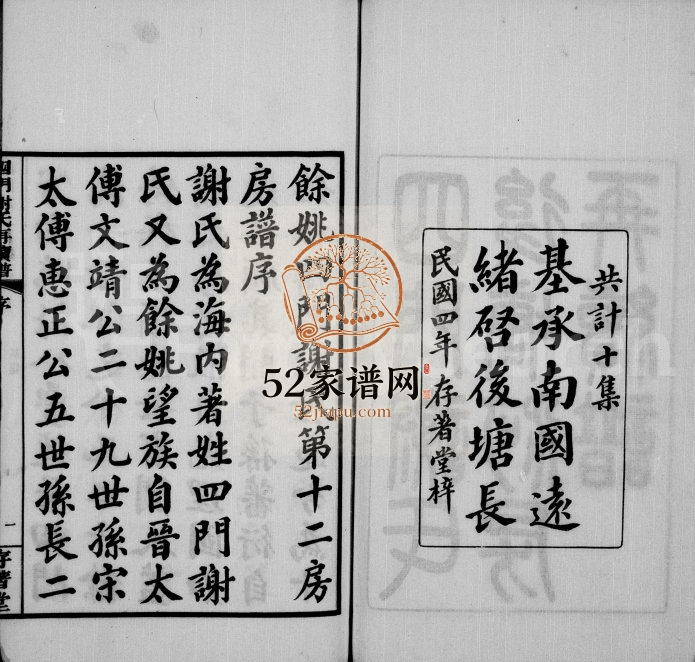 共計十集
基承南國遠
緒啓後塘長
民國四年 存著堂梓
餘姚四門謝氏第十二房
房譜序
謝氏為海內著姓四門謝
氏又為餘姚望族自晉太
傅文靖公二十九世孫宋
太傅惠正公五世孫長二
四門謝氏再續譜 序
一
存著堂
52家谱网
52jiapu.com